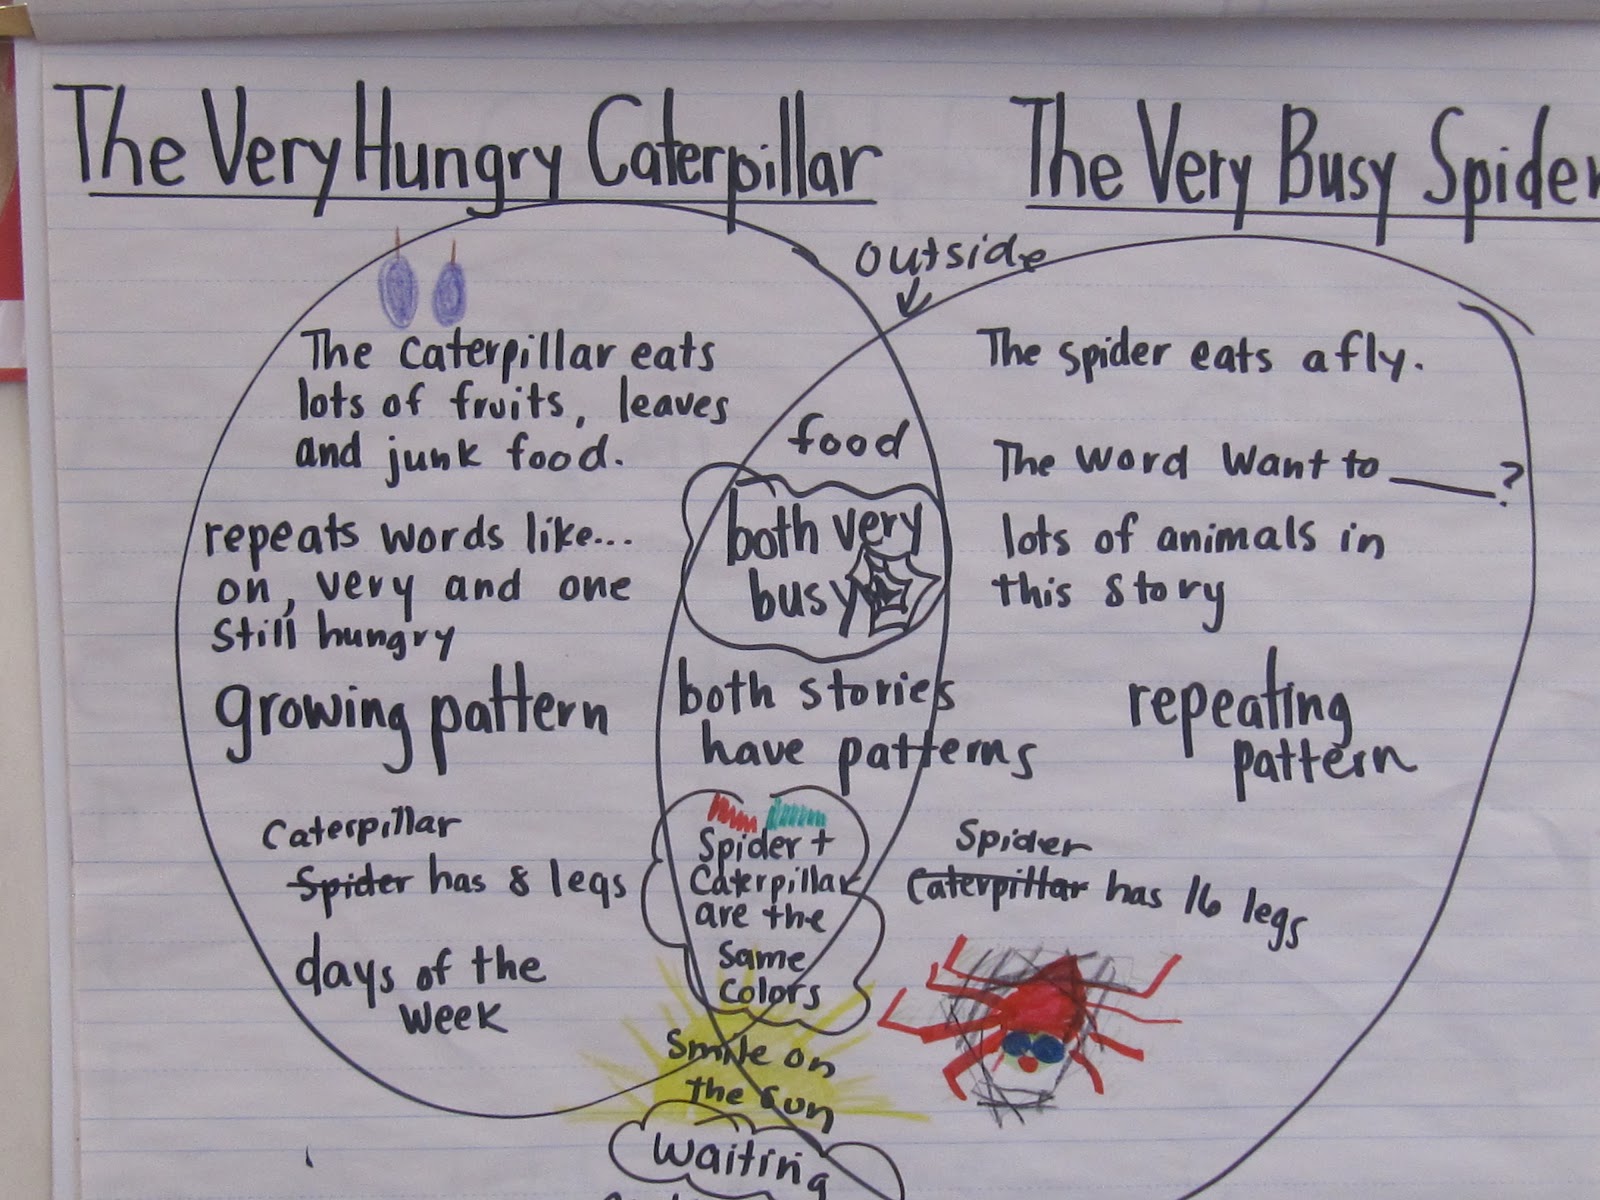 The Very Hungry Caterpillar
The Very Busy Spider
outside
The caterpillar eats
lots of fruits, leaves
and junk food.
repeats words like...
on, very and one
still hungry
growing pattern
Caterpillar
Spider has 8 legs
days of the
week
food
both very
busy
both stories
have patterns
Spider +
Caterpillar
are the
same
colors
Smile on
the sun
waiting
The spider eats a fly.
The word want to ____?
lots of animals in
this story
repeating
pattern
Spider
Caterpillar has 16 legs